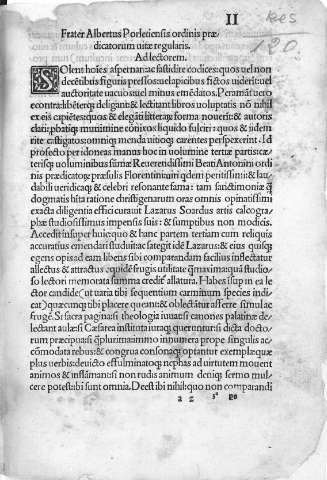 II
Res
120
Frater Albertus Porleciensis ordinis præ
dicatorum uitæ regularis.
Ad lectorem.
SOlent hoies aspernari ac fastidire codices: quos uel non
decētibus figuris pressos uel apicibus fictos uiderīt: uel
auctoritate uacuos uel minus emēdatos. Peramāt uero
econtra libēterq; deligunt & lectitant libros uoluptatis
ex eis capiētes: quos & elegāti litterarum forma nouerīt: & autoris
clari: pbatiq; munimine cōnixos liquido fulciri: quos & idem
rite castigatos: omniq; menda uitioq; carentes perspexerint. Id
profecto per idoneas manus hoc in uolumine tertiæ partis cæ
terisq; uoluminibus summæ Reuerendissimi Beati Antonini ordi
nis prædicatorum præsulis Florentini peritissimi: & lau
dabili ueridicaq; & celebri resonante fama: tam sanctimoniæ
dogmatis hita ratione christigenarum oras omnis opinatissimi
exacta diligentia effici curauit Lazarus Soardus artis calcogra
phæ studiosissimus impensis suis: & sumptibus non modicis.
Accedit insuper huicquoque & hanc partem tertiam cum reliquis
accuratius emendari studuit ac sategit idē Lazarus: & eius quisq;
egens opis ad eam libens sibi comparandam facilius inflectatur
allectus & attractus. quidē frugis utilitate maxima studio
so lectori memorata summa credit allatura. Habes insup in ea le
ctor candide ut uaria tibi sequentium carminum species indi
cat) quæcunq; tibi placere queunt: & oblectatum afferre simulac
frugē. Si sacra pagina: si theologia iuuat: si canones palatinæ de
lectant aulæ: si Cæsarea instituta iuraq;: si dicta docto
rum præcipua: si plurima immo innumera prope singulis ac
cōmodata rebus: & congrua consonaq; optantur exempla: quæ
plus uerbis: deuicto effulminatoq; nephas ad uirtutem mouent
animos & inflāmant: si non rudis animum deniq; sermo mul
cere potest: ibi sunt omnia. Deest ibi nihil: quo non comparandi
a 2 3ª ps